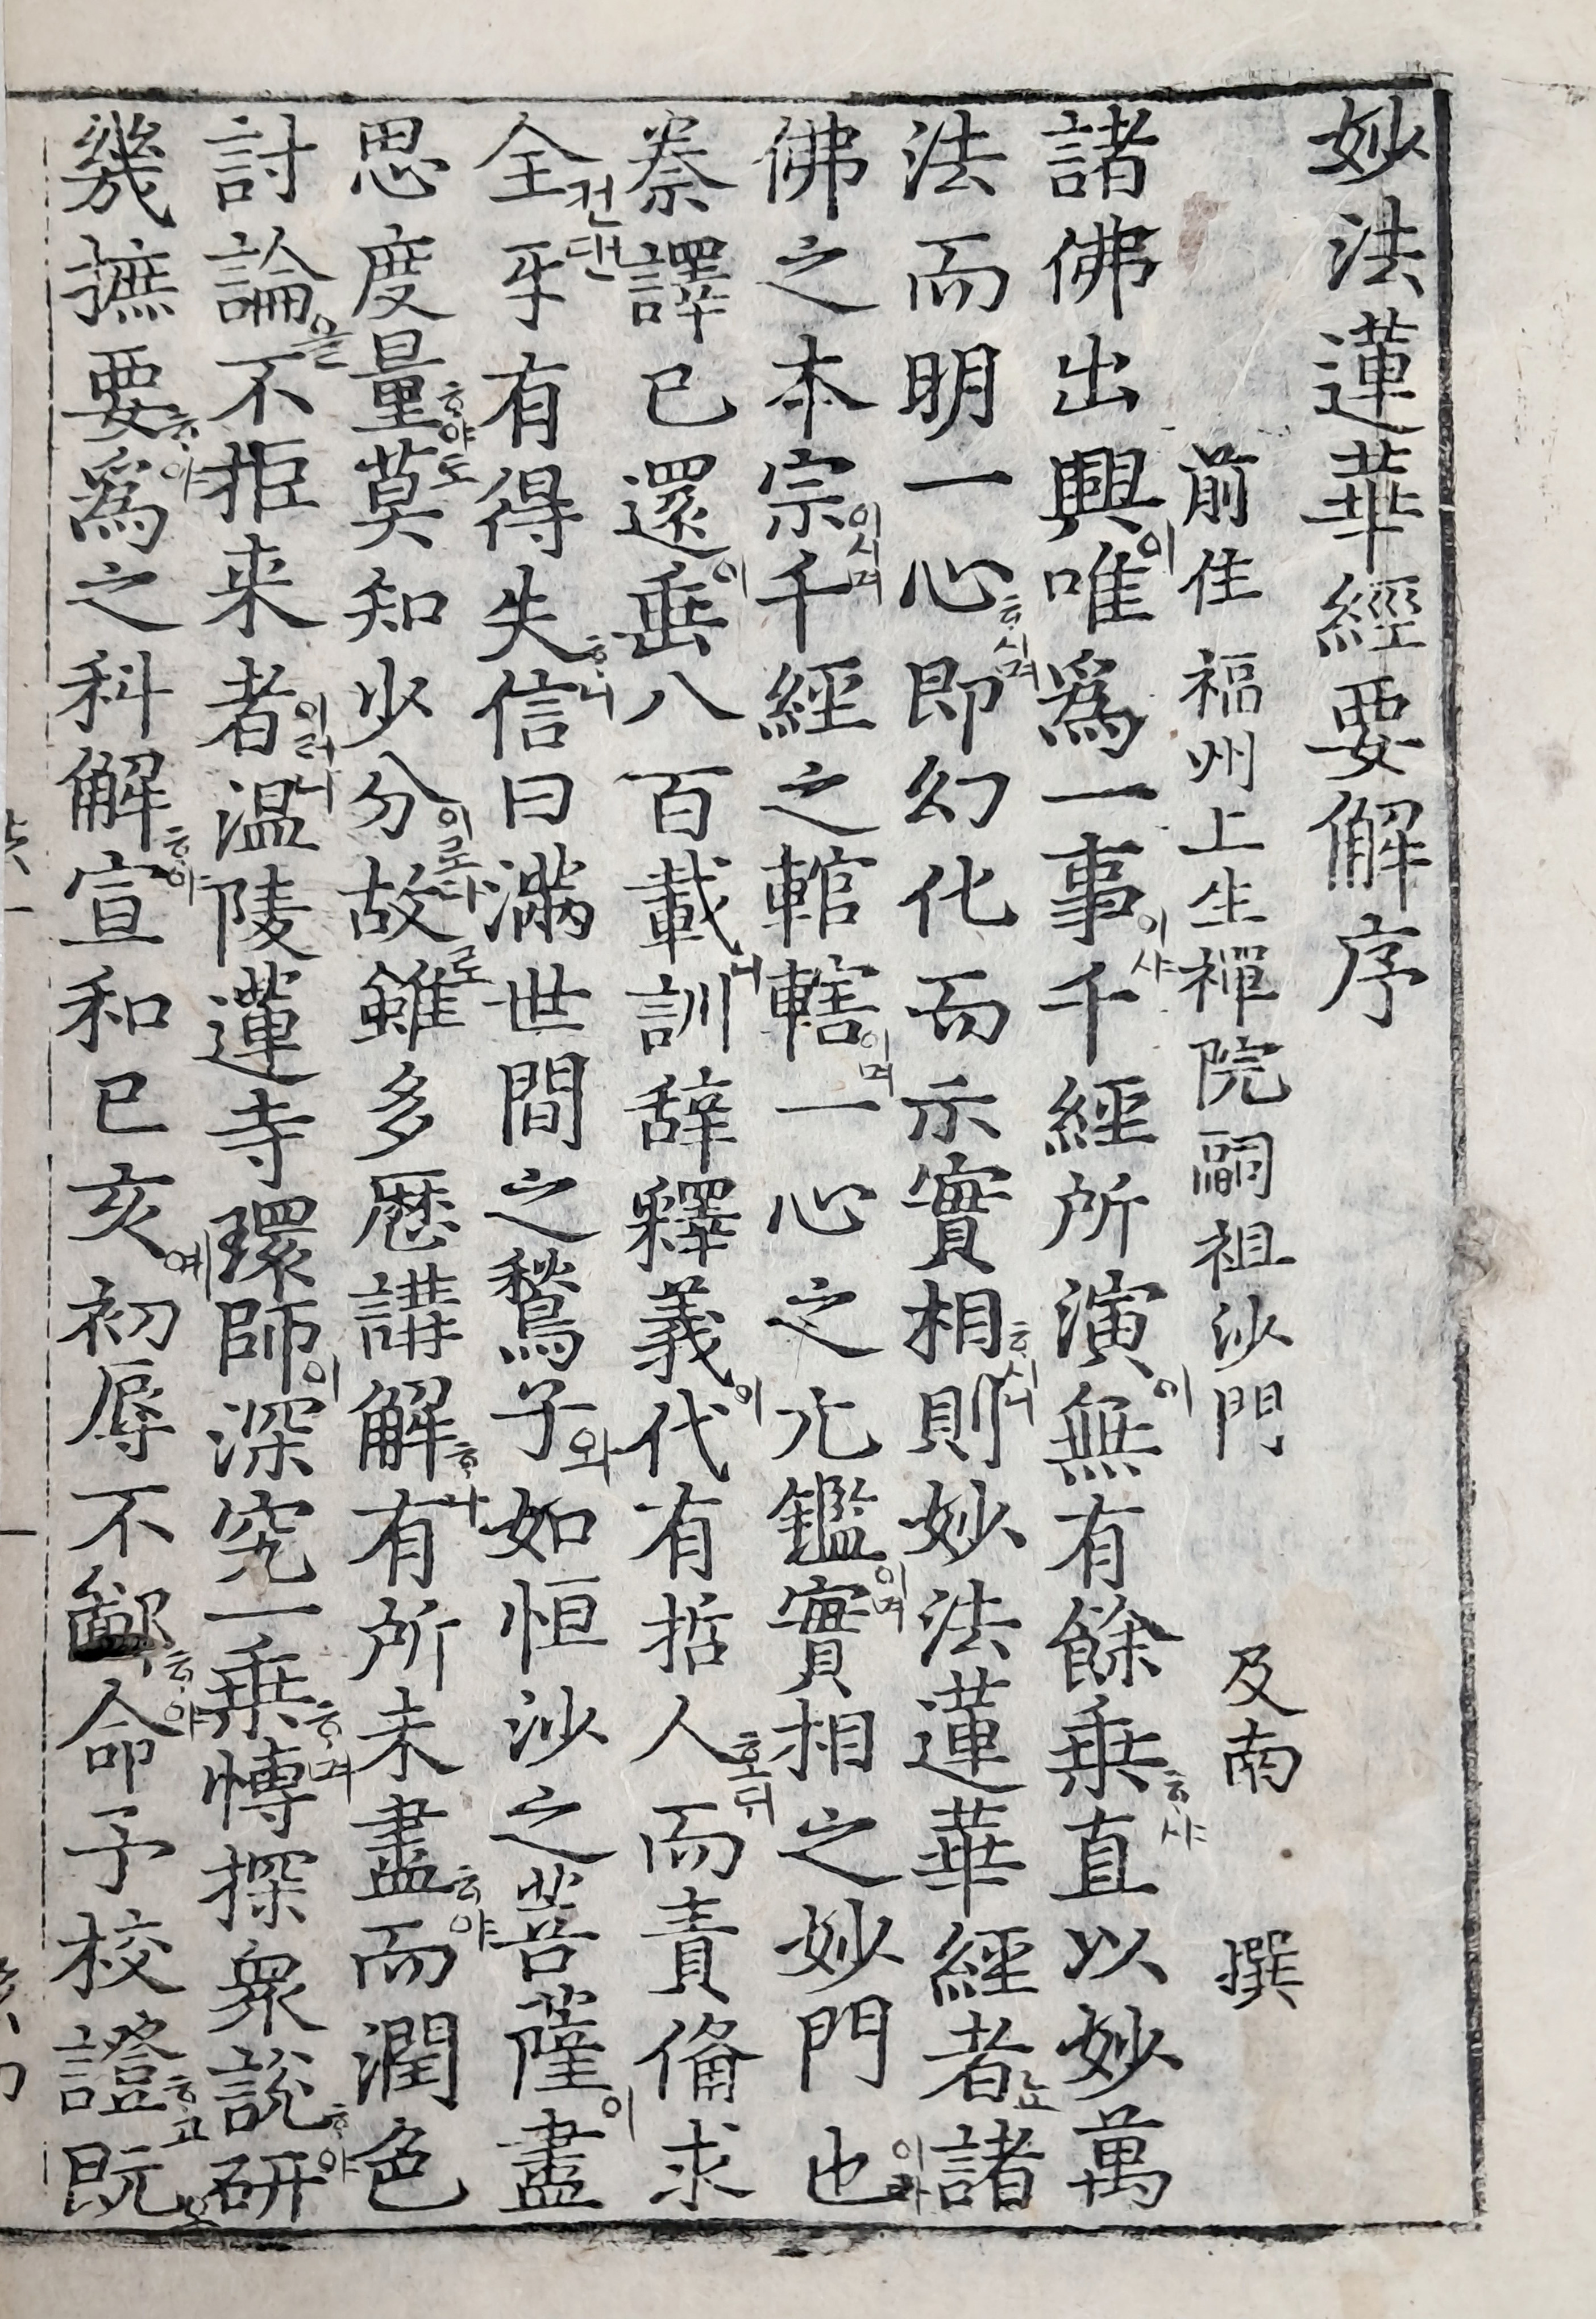 妙法蓮華經要解序
前住福州上生禪院嗣祖沙門 及南 撰
諸佛出興이唯爲一事이샤千經所演이無有餘乗ᄒᆞ샤直以妙萬
法而明一心ᄒᆞ시며即幻化而示實相ᄒᆞ시니則妙法蓮華經者諸
佛之本宗이시며千經之輨轄이며一心之元鑑이며實相之妙門也이라
秦譯已還이垂八百載니訓辭釋義이代有哲人호ᄃᆡ而責俻求
全컨댄乎有得失ᄒᆞ니信曰滿世間之鶖子와如恒沙之菩薩이盡
思度量ᄒᆞ야도莫知少分이로다故로雖多歷講解ᄒᆞ나有所未盡ᄒᆞ야而潤色
討論은不拒来者이러니温陵蓮寺環師이深究一乗ᄒᆞ며慱探衆說ᄒᆞ야研
幾摭要ᄒᆞ야爲之科解ᄒᆞ야宣和已亥예初辱不鄙ᄒᆞ야命予校證ᄒᆞ고旣